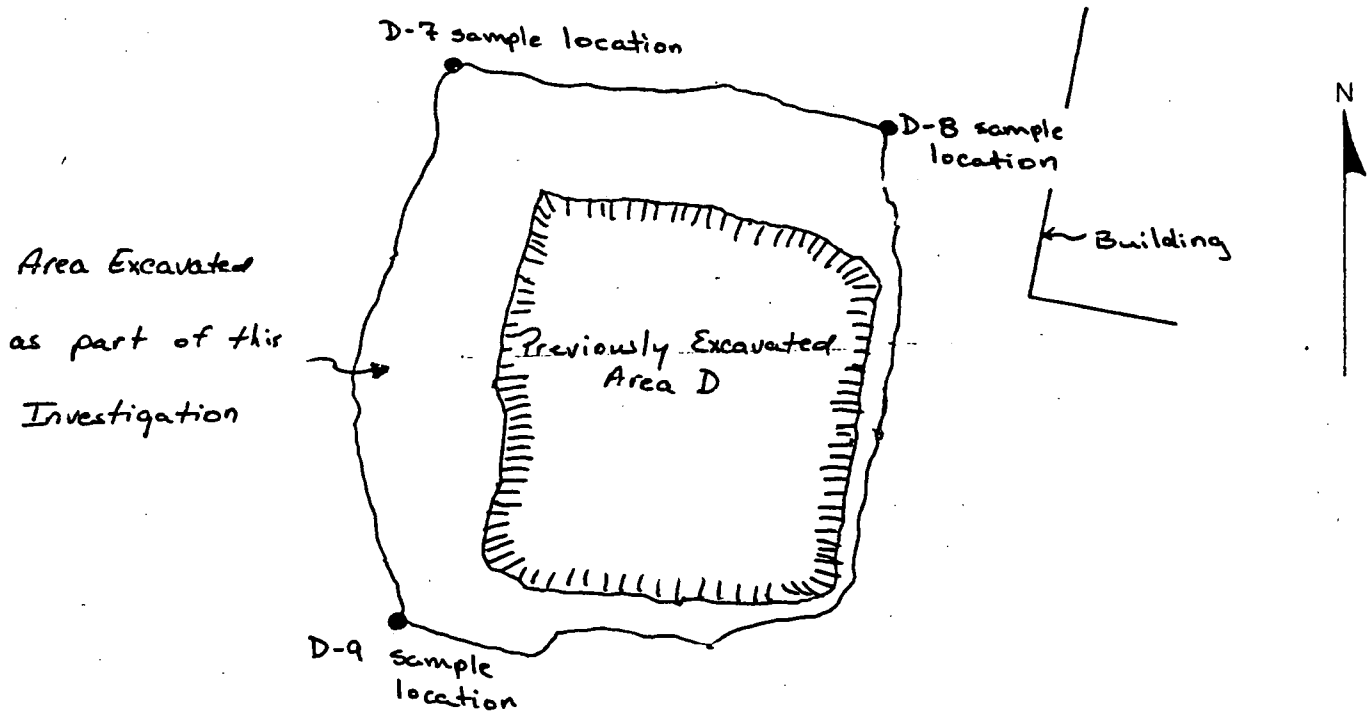 D-7 sample location
N
D-8 sample
location
Building
Area Excavated
as part of this
Investigation
Previously Excavated
Area D
D-9 sample
location